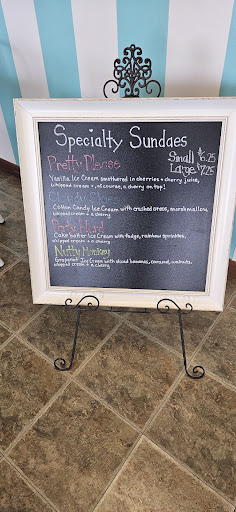 Specialty Sundaes
Small $6.25
Large $7.25
Pretty Please
Vanilla Ice Cream smothered in cherries + cherry juice,
whipped cream +, of course, a cherry on top!
Cotton Candy Ice Cream with crushed oreos, marshmallow,
whipped cream + a cherry
Party Animal
Cake batter Ice Cream with fudge, rainbow sprinkles,
whipped cream + a cherry
Nutty Monkey
Ice Cream with sliced bananas, caramel, walnuts,
whipped cream + a cherry